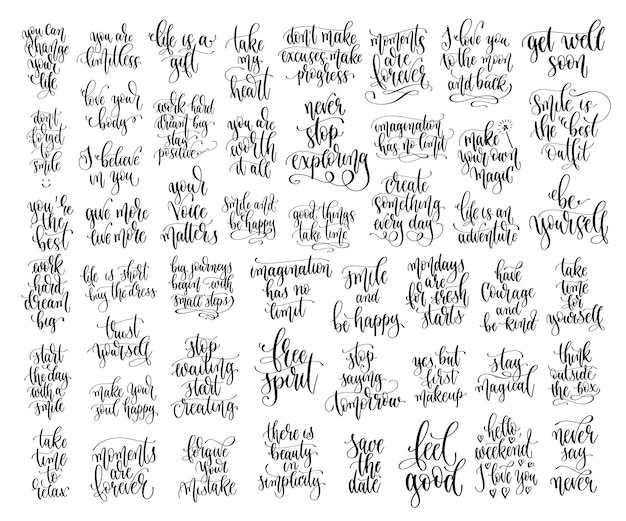 you can
change
your
life
you are
limitless
life is a
gift
take
my
heart
don't make
excuses make
progress
moments
are
forever
I love you
to the moon
and back
get well
soon
don't
forget
to
smile
love your
body
I believe
in you
work hard
dream big
stay
positive
you are
worth
it all
never
stop
exploring
imagination
has no limit
make
your own
magic
smile is
the best
outfit
you're
the
best
give more
live more
your
voice
matters
smile and
be happy
good things
take time
create
something
every day
life is an
adventure
be
yourself
work
hard
dream
big
life is short
buy the dress
big journeys
begin with
small steps
imagination
has no
limit
smile
and
be happy
mondays
are
for fresh
starts
have
courage
and
be kind
take
time
for
yourself
start
the day
with a
smile
trust
yourself
make your
soul happy
stop
waiting
start
creating
free
spirit
stop
saying
tomorrow
yes but
first
makeup
stay
magical
think
outside
the box
take
time
to
relax
moments
are
forever
forgive
your
mistake
there is
beauty
in
simplicity
save
the
date
feel
good
hello,
weekend
I love you
never
say
never